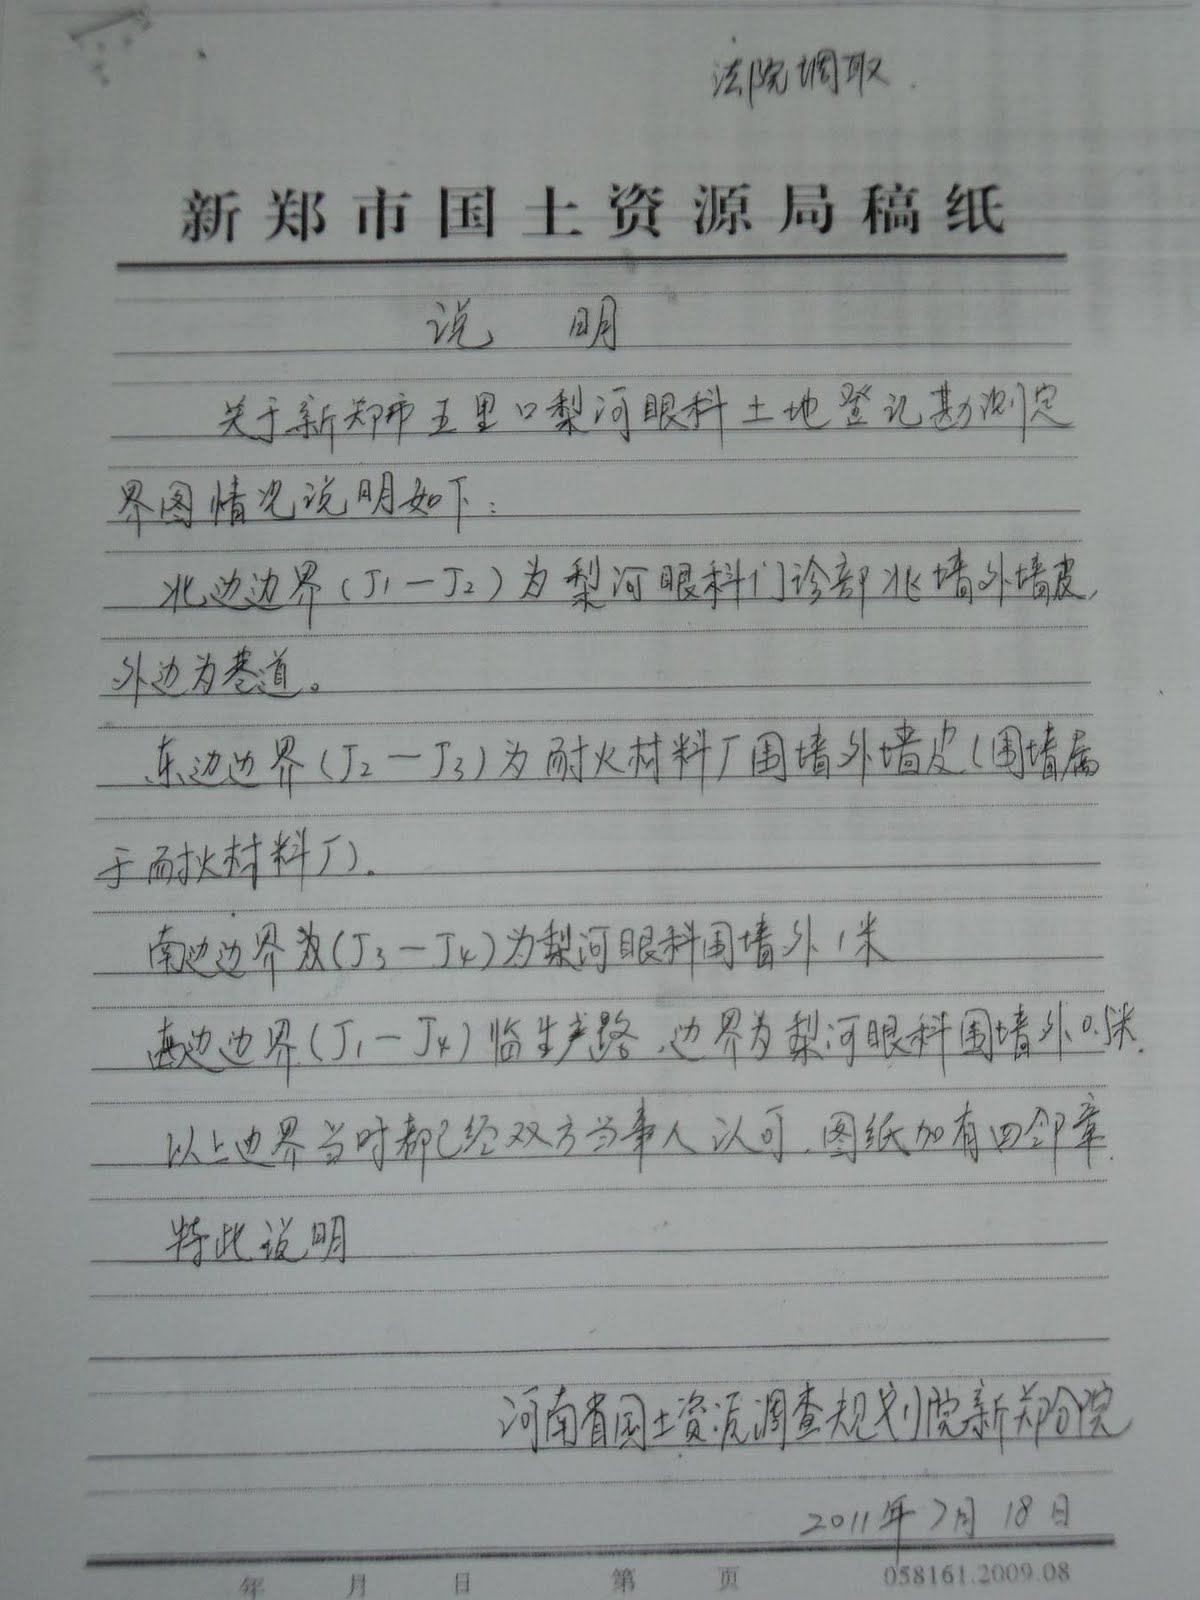 法院调取.
新郑市国土资源局稿纸
说 明
关于新郑市五里口梨河眼科土地登记勘测定
界图情况说明如下：
北边边界(J1－J2)为梨河眼科门诊部北墙外墙皮,
外边为巷道。
东边边界(J2－J3)为耐火材料厂围墙外墙皮(围墙属
于耐火材料厂).
南边边界为(J3－J4)为梨河眼科围墙外1米
西边边界(J1－J4)临生产路.边界为梨河眼科围墙外0.5米.
以上边界当时都已经双方当事人认可.图纸加有四邻章.
特此说明
河南省国土资源调查规划院新郑分院
2011年7月18日
年 月 日 第 页 058161.2009.08